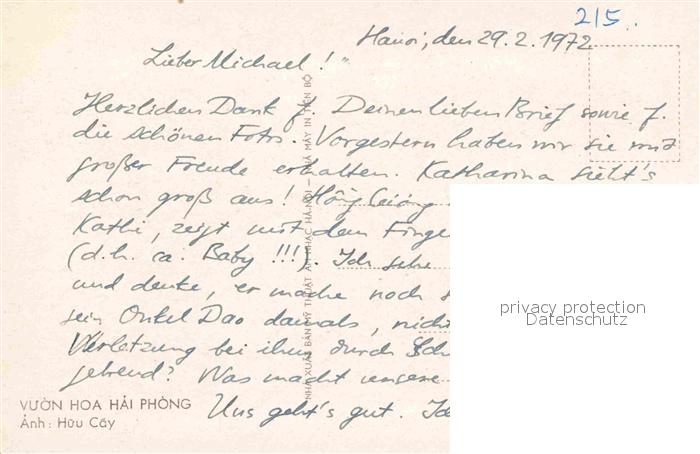 215.
Hanoi, den 29.2.1972
Lieber Michael!
Herzlichen Dank f. Deinen lieben Brief sowie f.
die schönen Fotos. Vorgestern haben wir sie mit
großer Freude erhalten. Katharina sieht's
schon groß aus! Hồng
Kathi, zeigt mit dem Finge
(d.h. ca. Baby !!!). Ich sehe
und denke, er mache noch
sein Onkel Dao damals, nicht
Verletzung bei ihm durch
gebend? Was macht unsere
Uns geht's gut. Ic
VƯỜN HOA HẢI PHÒNG
Ảnh: Hữu Cấy
NHÀ XUẤT BẢN MỸ THUẬT ÂM NHẠC HÀ-NỘI — NHÀ MÁY IN TIẾN BỘ
privacy protection
Datenschutz